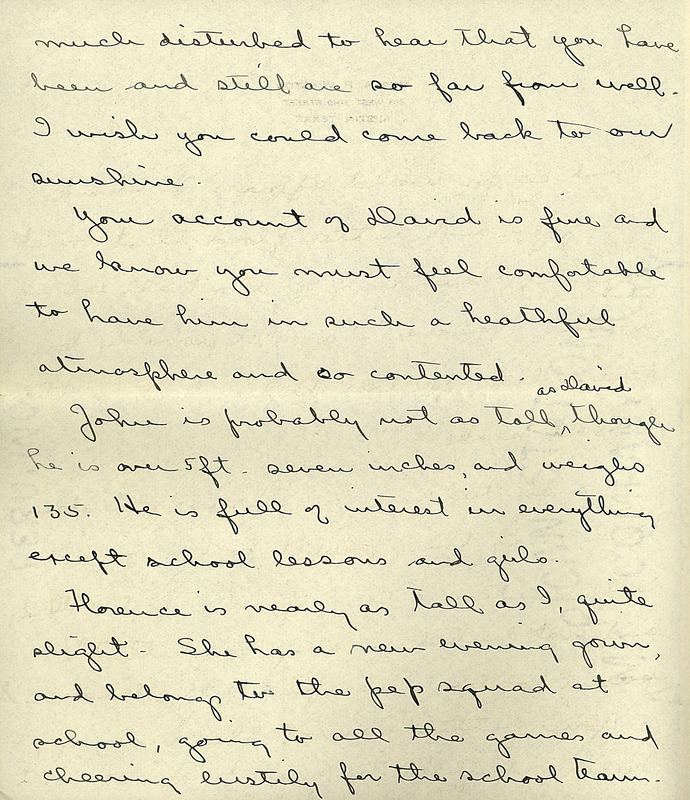 much disturbed to hear that you have
been and still are so far from well.
I wish you could come back to our
sunshine.
Your account of David is fine and
we know you must feel comfortable
to have him in such a heathful
atmosphere and so contented.
as David
John is probably not as tall, though
he is over 5 ft. seven inches, and weighs
135. He is full of interest in everything
except school lessons and girls.
Florence is nearly as tall as I, quite
slight. She has a new evening gown,
and belongs to the pep squad at
school, going to all the games and
cheering lustily for the school team.